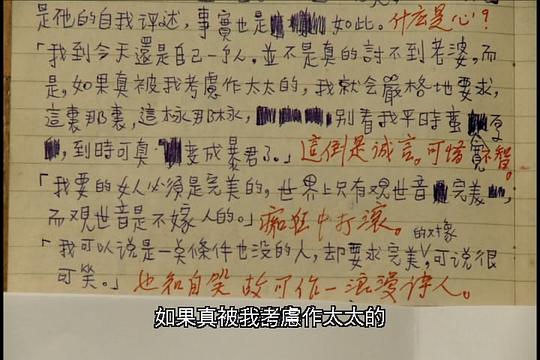 是他的自我评述，事實也是如此。什么是心？
「我到今天還是自己一个人，並不是真的討不到老婆，而
是，如果真被我考慮作太太的，我就会嚴格地要求，
這裏那裏，這样那样，別看我平時蛮
，到時可真变成暴君了。」這倒是诚言。可惜不智。
「我要的女人必須是完美的，世界上只有观世音完美，
而观世音是不嫁人的。」痴狂中打滚。
「我可以说是一条條件也没的人，却要求完美的对像，可说很
可笑。」也知自笑故可作一浪漫诗人。
如果真被我考慮作太太的